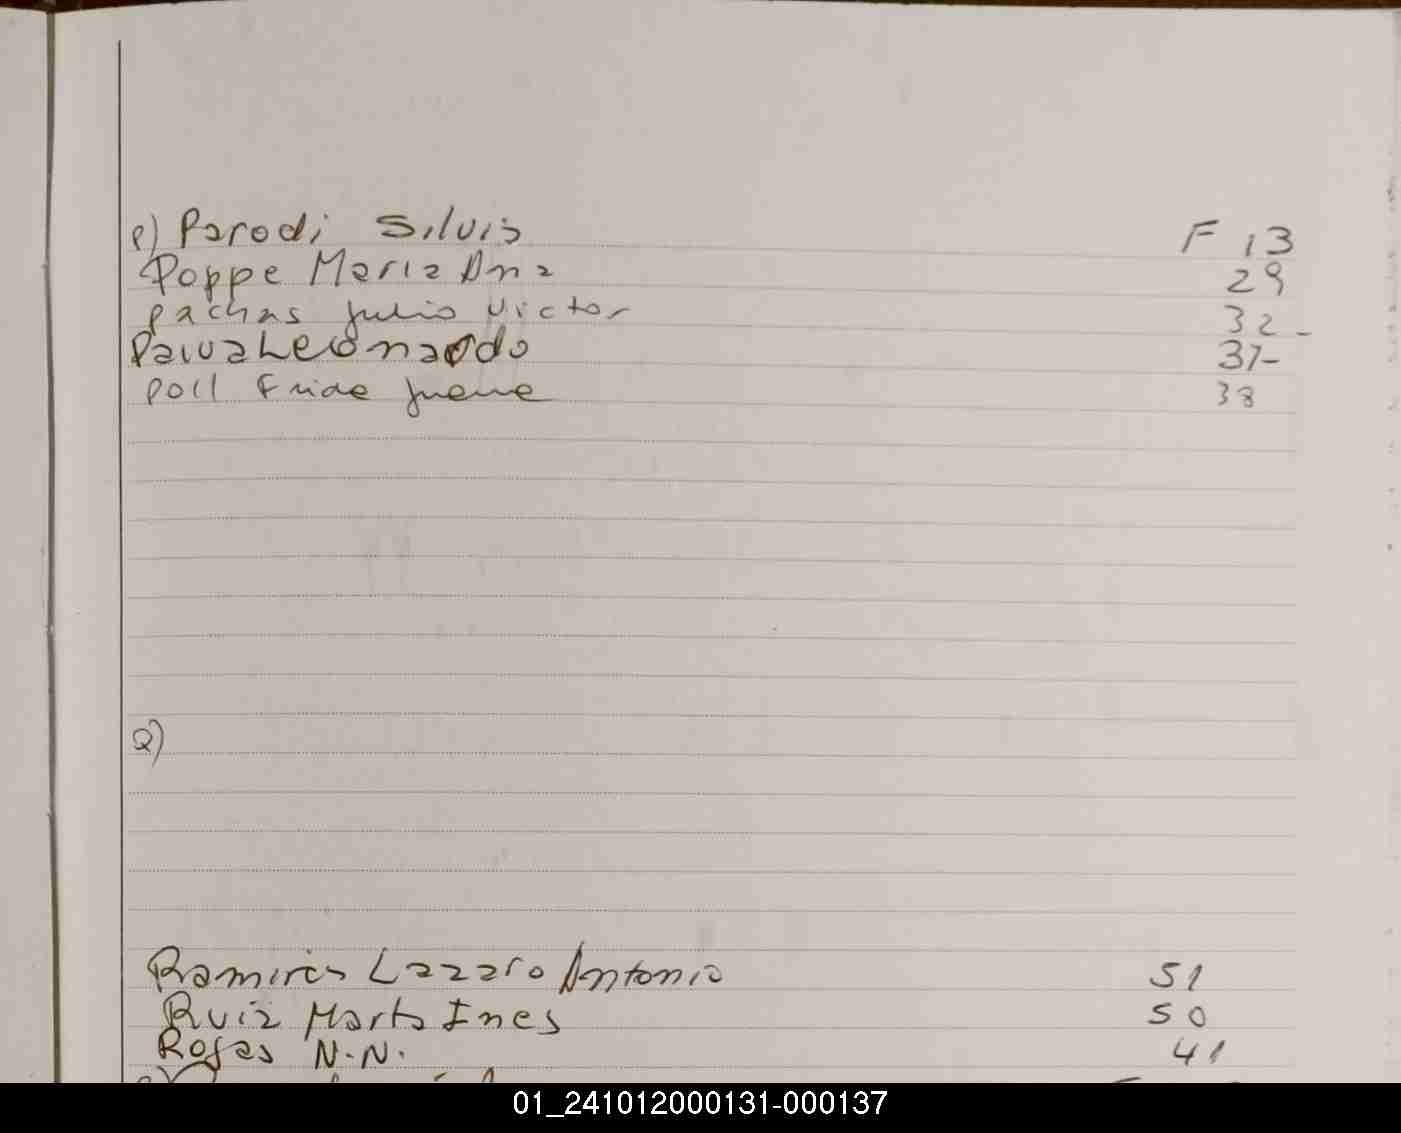 P) Parodi Silvia F 13
Poppe Maria Ana 29
Pachas Julio Victor 32-
Paiva Leonardo 37-
Poll Frida 38
Q)
Ramires Lazaro Antonio 51
Ruiz Marta Ines 50
Rojas N.N. 41
01_241012000131-000137